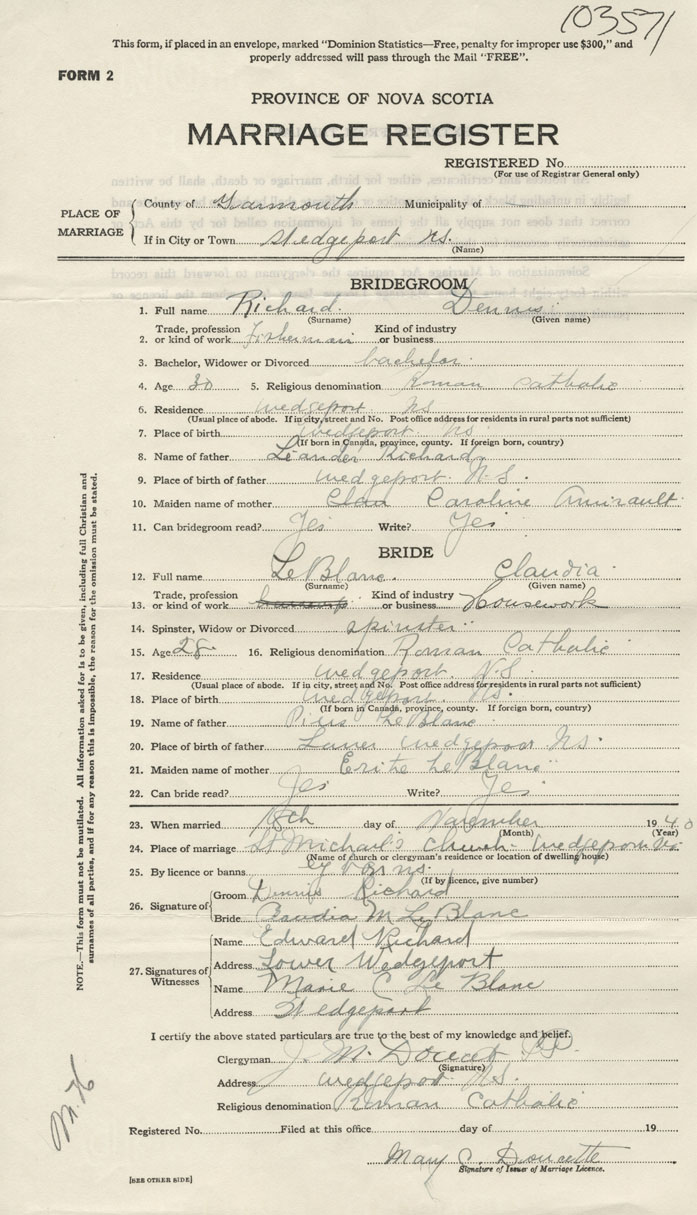 10357
This form, if placed in an envelope, marked "Dominion Statistics—Free, penalty for improper use $300," and
properly addressed will pass through the Mail "FREE".
FORM 2
PROVINCE OF NOVA SCOTIA
MARRIAGE REGISTER
REGISTERED No.
(For use of Registrar General only)
PLACE OF MARRIAGE
County of Yarmouth Municipality of
If in City or Town Wedgeport N.S.
(Name)
BRIDEGROOM
1. Full name Richard Dennis
(Surname) (Given name)
2. Trade, profession or kind of work Fisherman Kind of industry or business
3. Bachelor, Widower or Divorced bachelor
4. Age 30 5. Religious denomination Roman Catholic
6. Residence Wedgeport NS
(Usual place of abode. If in city, street and No. Post office address for residents in rural parts not sufficient)
7. Place of birth Wedgeport NS.
(If born in Canada, province, county. If foreign born, country)
8. Name of father Léander Richard
9. Place of birth of father Wedgeport N.S.
10. Maiden name of mother Caroline Amirault
11. Can bridegroom read? Yes Write? Yes
BRIDE
12. Full name LeBlanc. Claudia
(Surname) (Given name)
13. Trade, profession or kind of work Kind of industry or business Housework
14. Spinster, Widow or Divorced spinster
15. Age 28 16. Religious denomination Roman Catholic
17. Residence Wedgeport. N.S.
(Usual place of abode. If in city, street and No. Post office address for residents in rural parts not sufficient)
18. Place of birth Wedgeport. NS.
(If born in Canada, province, county. If foreign born, country)
19. Name of father LeBlanc
20. Place of birth of father Lower Wedgeport NS.
21. Maiden name of mother LeBlanc
22. Can bride read? Yes Write? Yes
23. When married 18th day of November 1940
(Month) (Year)
24. Place of marriage St Michael's Church Wedgeport NS.
(Name of church or clergyman's residence or location of dwelling house)
25. By licence or banns By banns
(If by licence, give number)
26. Signature of
Groom Dennis Richard
Bride Claudia M Le Blanc
27. Signatures of Witnesses
Name Edward Richard
Address Lower Wedgeport
Name Marie C Le Blanc
Address Wedgeport
I certify the above stated particulars are true to the best of my knowledge and belief.
Clergyman J. M. Doucet
(Signature)
Address Wedgeport N.S.
Religious denomination Roman Catholic
Registered No. Filed at this office day of 19
Mary C. Doucette
Signature of Issuer of Marriage Licence.
[SEE OTHER SIDE]
NOTE.—This form must not be mutilated. All information asked for is to be given, including full Christian and
surnames of all parties, and if for any reason this is impossible, the reason for the omission must be stated.